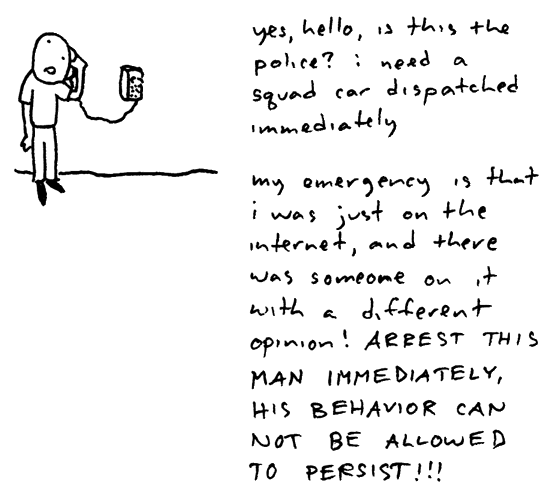 yes, hello, is this the
police? i need a
squad car dispatched
immediately
my emergency is that
i was just on the
internet, and there
was someone on it
with a different
opinion! ARREST THIS
MAN IMMEDIATELY,
HIS BEHAVIOR CAN
NOT BE ALLOWED
TO PERSIST!!!